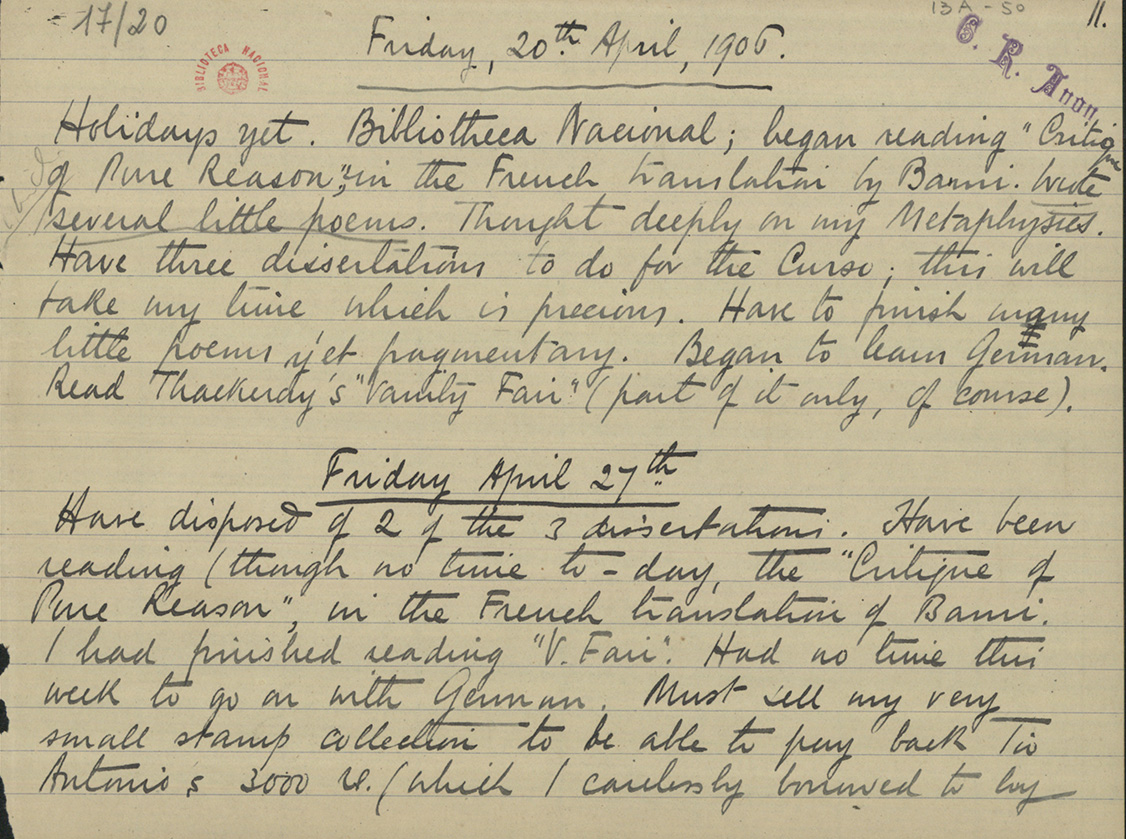 17/20
13A - 50
11.
BIBLIOTECA NACIONAL
C. R. Anon
Friday, 20th April, 1906.
Holidays yet. Bibliotheca Nacional; began reading "Critique
of Pure Reason", in the French translation by Barni. Wrote
several little poems. Thought deeply on my Metaphysics.
Have three dissertations to do for the Curso; this will
take my time which is precious. Have to finish many
little poems yet fragmentary. Began to learn German.
Read Thackeray's "Vanity Fair" (part of it only, of course).
Friday April 27th
Have disposed of 2 of the 3 dissertations. Have been
reading (though no time to-day, the "Critique of
Pure Reason", in the French translation of Barni.
I had finished reading "V. Fair". Had no time this
week to go on with German. Must sell my very
small stamp collection to be able to pay back Tio
Antonio's 3000 rs. (which I carelessly borrowed to buy